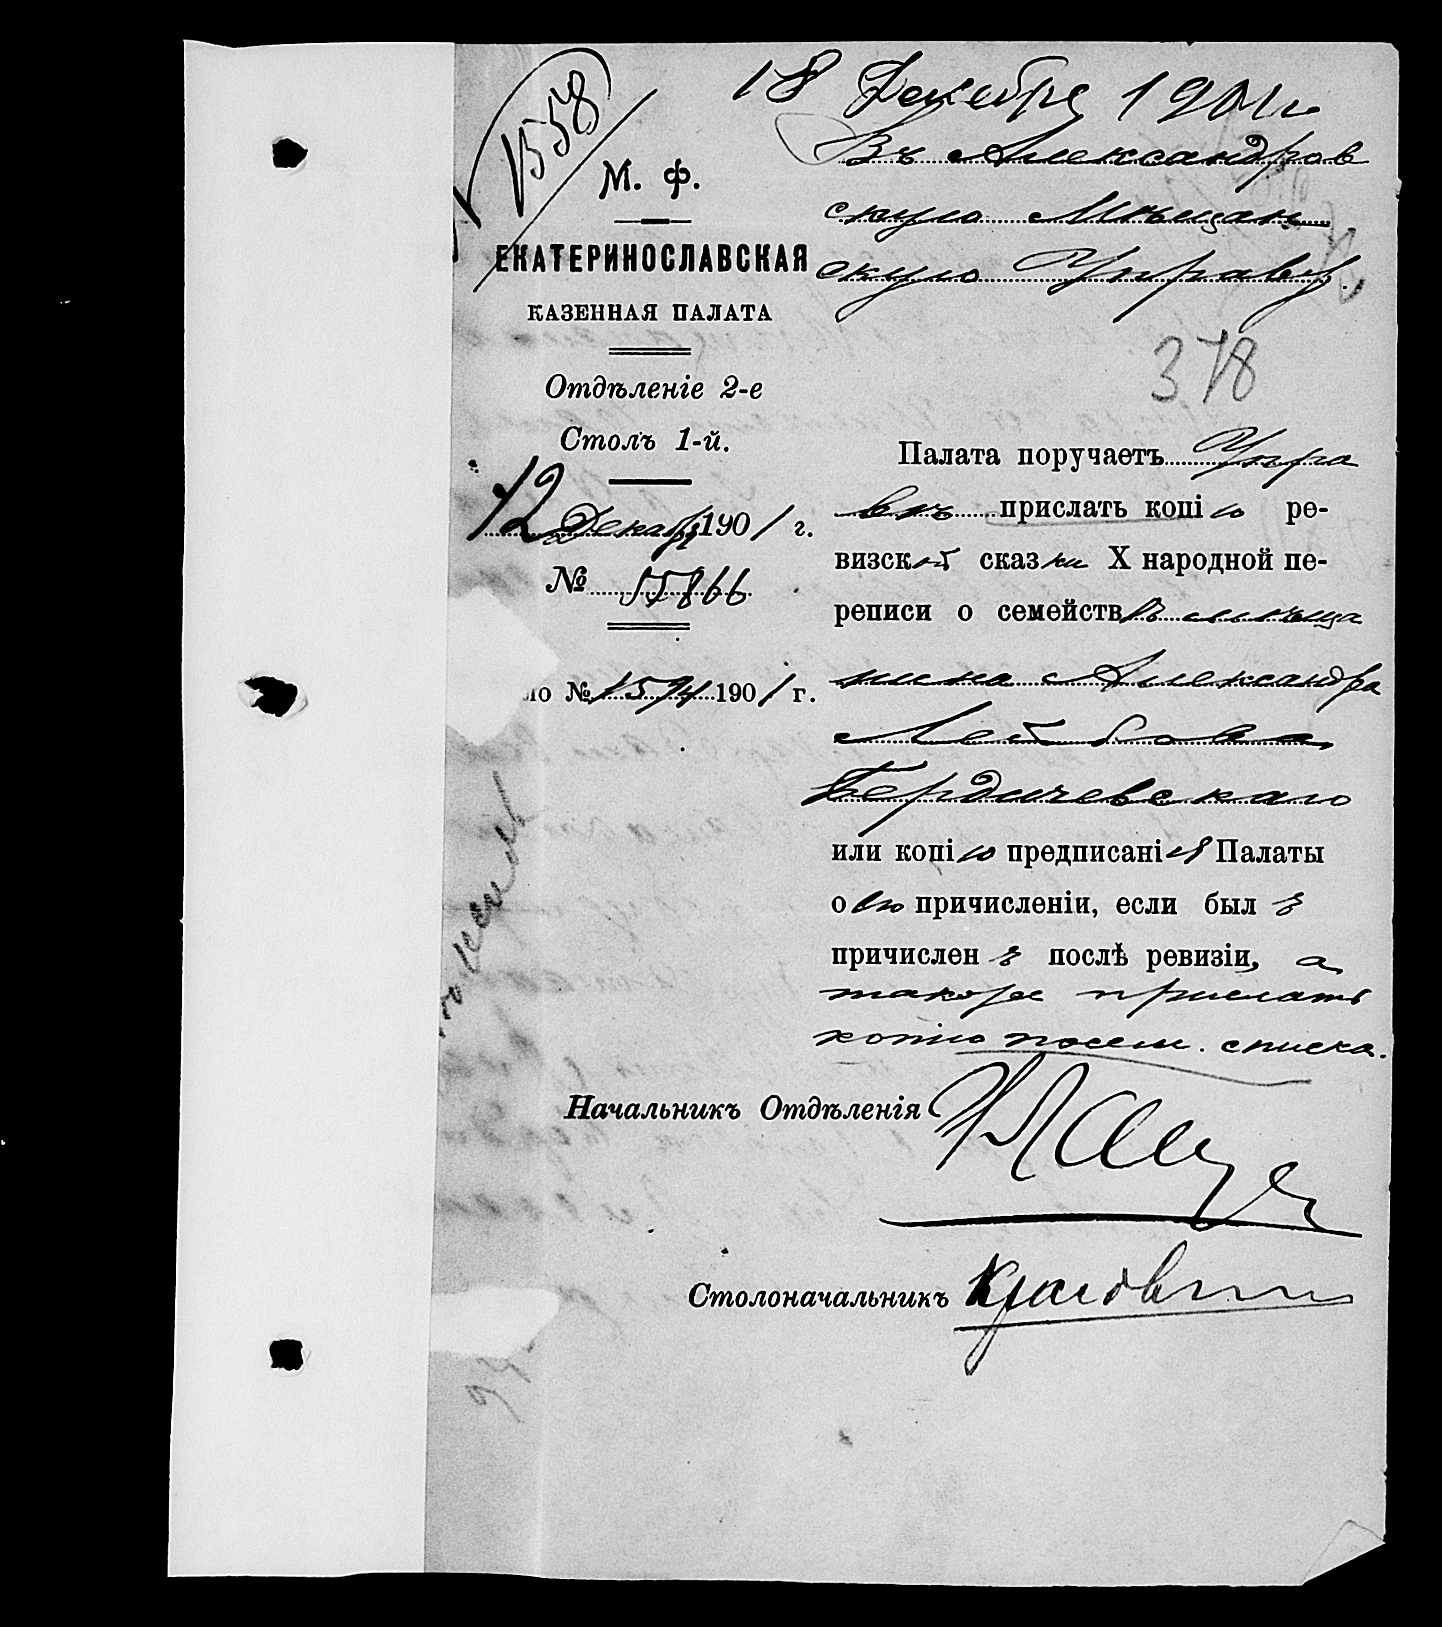 18 Декабря 1901 г.
1558
М. Ф.
ЕКАТЕРИНОСЛАВСКАЯ
КАЗЕННАЯ ПАЛАТА
Отдѣленіе 2-е
Столъ 1-й.
12 Декабр 1901 г.
№ 55866
№ 1574 1901 г.
Въ Александров
скую Мѣщан
скую Управу
378
Палата поручаетъ Упра
вѣ прислать копію ре-
визской сказки X народной пе-
реписи о семействѣ мѣща
нина Александра
Лейбова
Бердичевскаго
или копію предписанія Палаты
о его причисленіи, если былъ
причисленъ послѣ ревизіи, а
также прислать
копію посем. списка.
Начальникъ Отдѣленія
Столоначальникъ